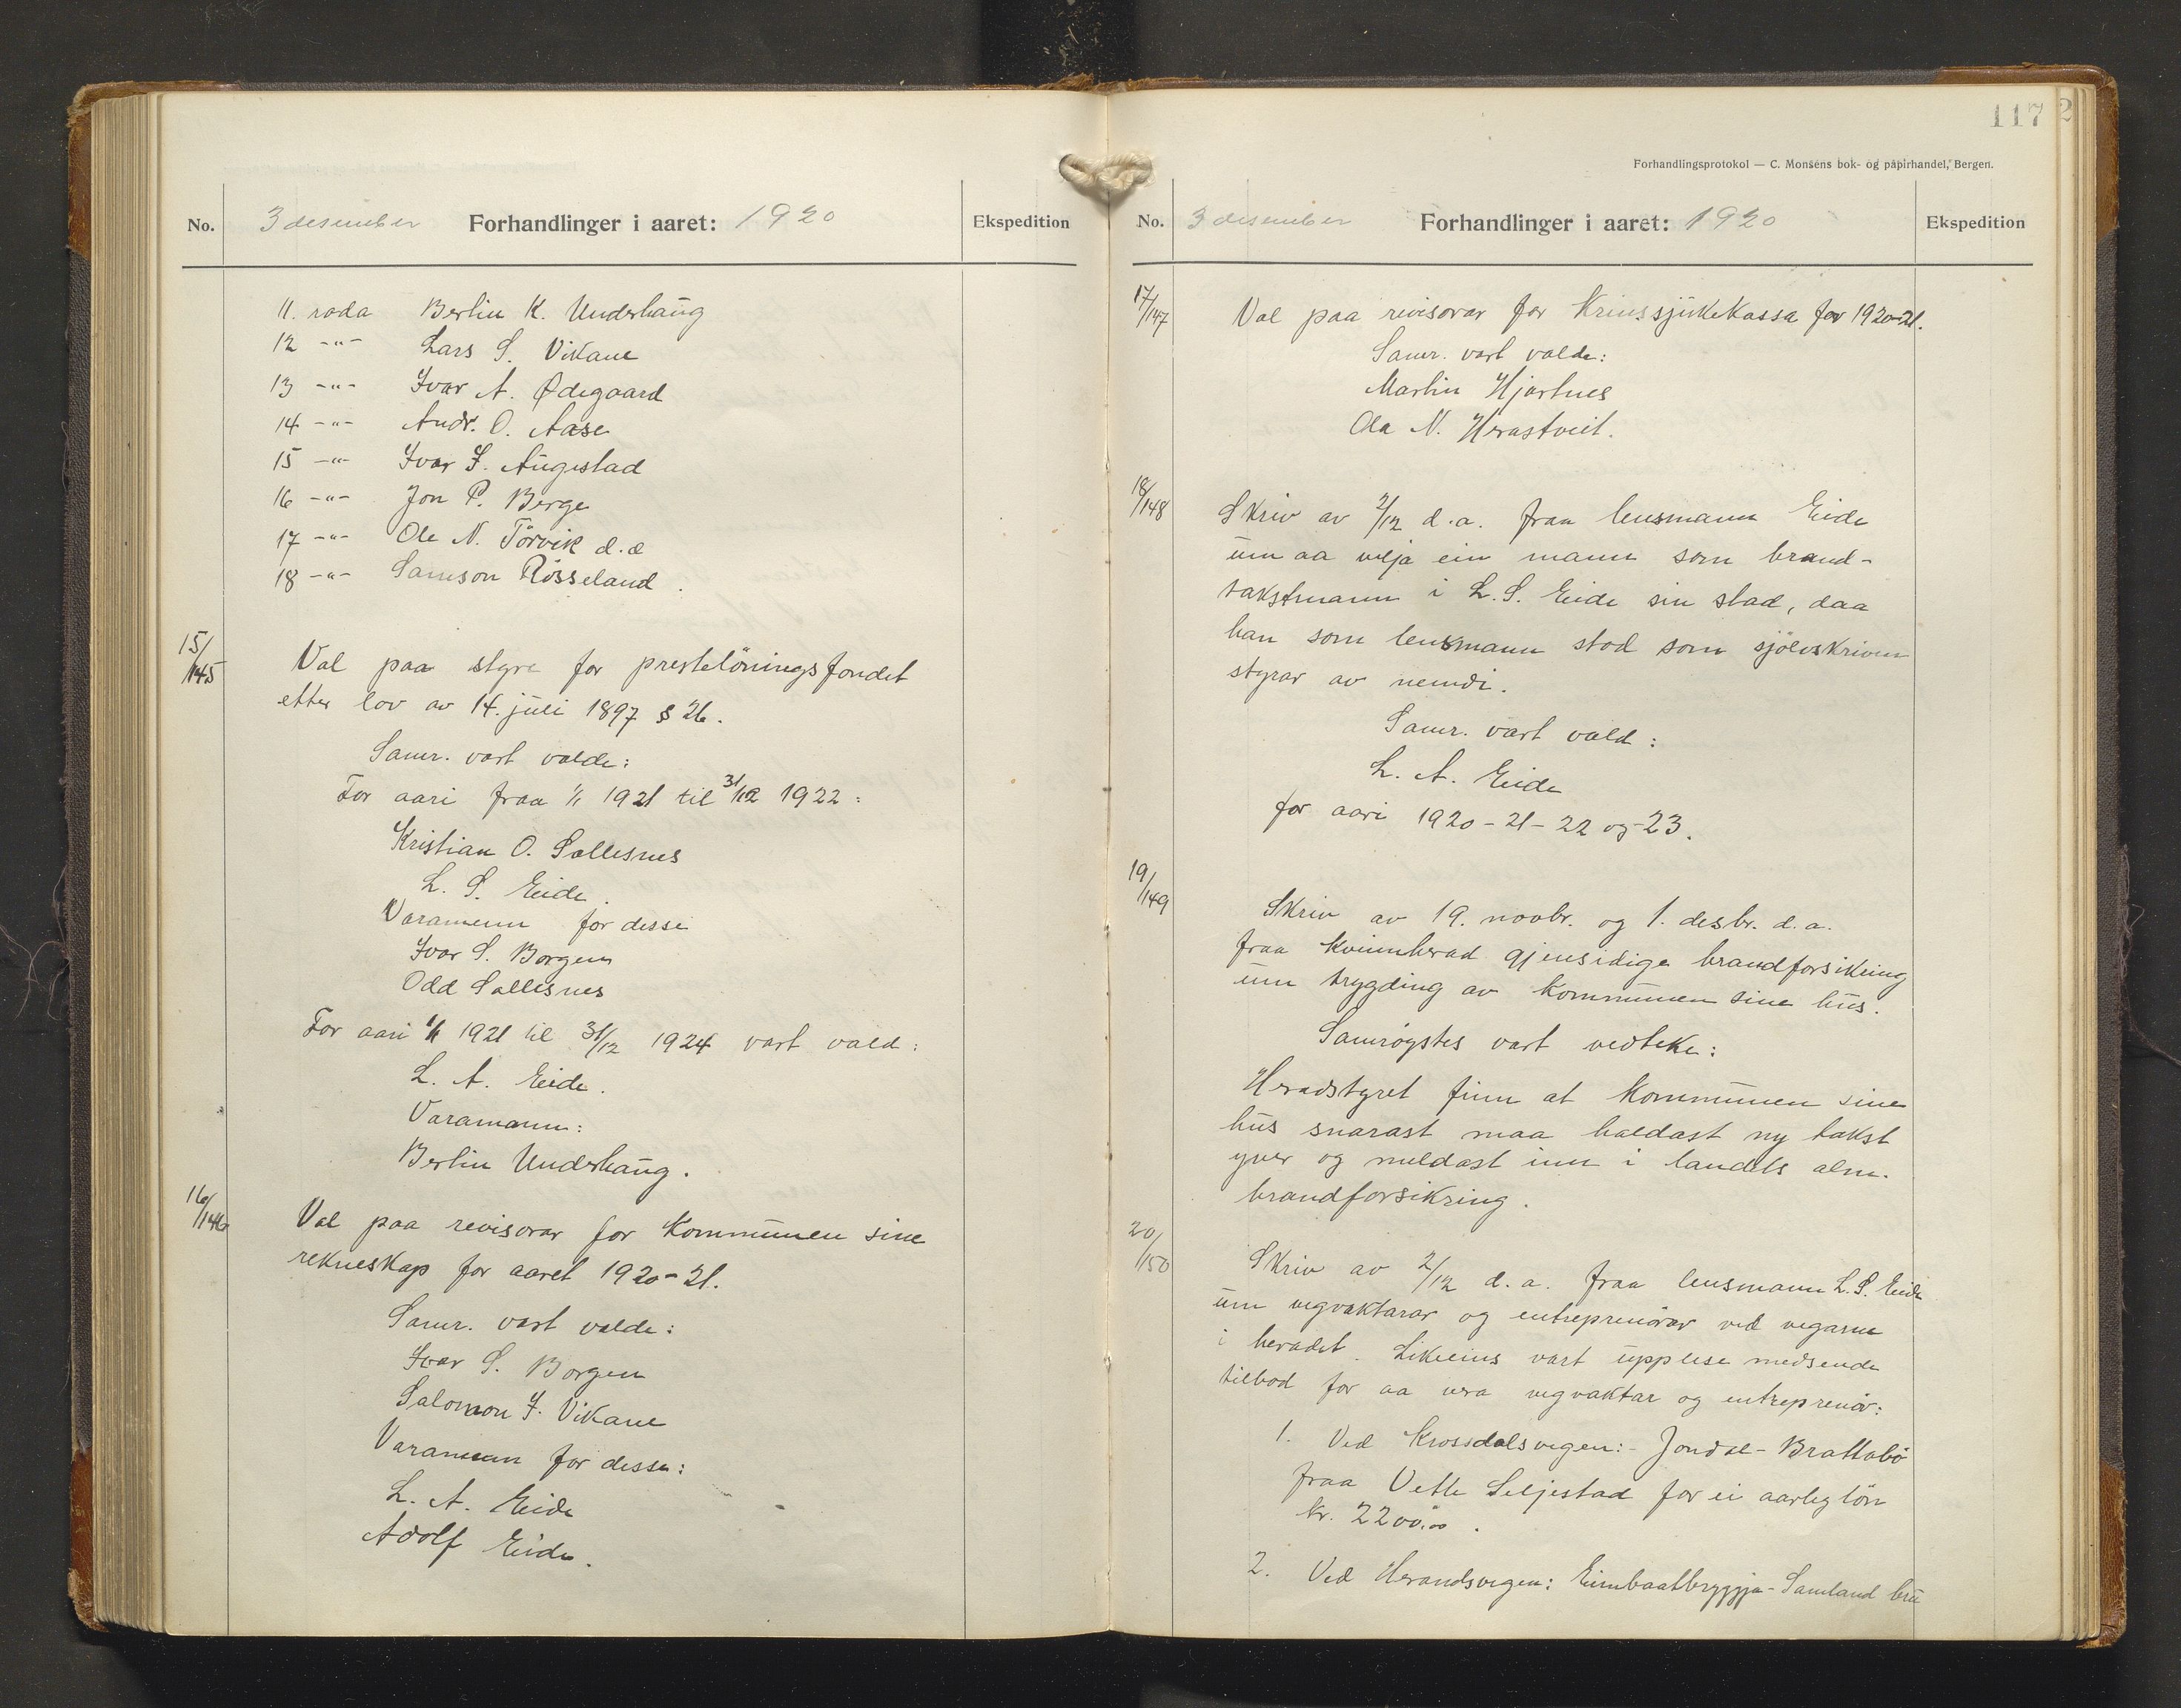 No. 3 desember Forhandlinger i aaret: 1920 Ekspedition
11. roda Berlin K. Underhaug
12 -"- Lars S. Vikane
13 -"- Ivar A. Ødegaard
14 -"- Andr. O. Aase
15 -"- Ivar J. Augestad
16 -"- Jon P. Berge
17 -"- Ole N. Törvik d.e
18 -"- Samson Røsseland.
15/145 Val paa styre for prestelöningsfondet
etter lov av 14. juli 1897 § 26.
Samr. vart valde:
For aari fraa 1/1 1921 til 31/12 1922:
Kristian O. Sallesnes
L. S. Eide.
Varamenn for desse
Ivar S. Borgen
Odd Sallesnes
For aari 1/1 1921 til 31/12 1924 vart vald:
L. A. Eide.
Varamann:
Berlin Underhaug.
16/146 Val paa revisorar for Kommunen sine
rekneskap for aaret 1920-21.
Samr. vart valde:
Ivar S. Borgen
Salomon J. Vikane
Varamenn for desse:
L. A. Eide
Adolf Eide.
117
2
Forhandlingsprotokol — C. Monsens bok- og papirhandel, Bergen.
No. 3 desember Forhandlinger i aaret: 1920 Ekspedition
17/147 Val paa revisorar for Krinssjukekassa for 1920-21.
Samr. vart valde:
Martin Hjartnes
Ola N. Herastveit.
18/148 Skriv av 2/12 d.a. fraa lensmann Eide
um aa velja ein mann som brand-
takstmann i L. S. Eide sin stad, daa
han som lensmann stod som sjölvskriven
styrar av nemdi.
Samr. vart vald:
L. A. Eide
for aari 1920-21-22 og-23.
19/149 Skriv av 19. novbr. og 1. desbr. d.a.
fraa Kvinnherad gjensidige brandforsikring
um trygding av Kommunen sine hus.
Samrøystes vart vedteke:
Heradstyret finn at Kommunen sine
hus snarast maa haldast ny takst
yver og meldast inn i landets alm.
brandforsikring.
20/150 Skriv av 2/12 d.a. fraa lensmann L. S. Eide
um vegvaktarar og entreprenörar ved vegarne
i heradet. Likeeins vart upplese medsende
tilbod for aa vera vegvaktar og entreprenör:
1. Ved Krossdalsvegen: Jondal-Brattabö
fraa Vetle Seljestad for ei aarleg lön
kr. 2200.00.
2. Ved Herandsvegen: Eimbaatbryggja-Samland bru